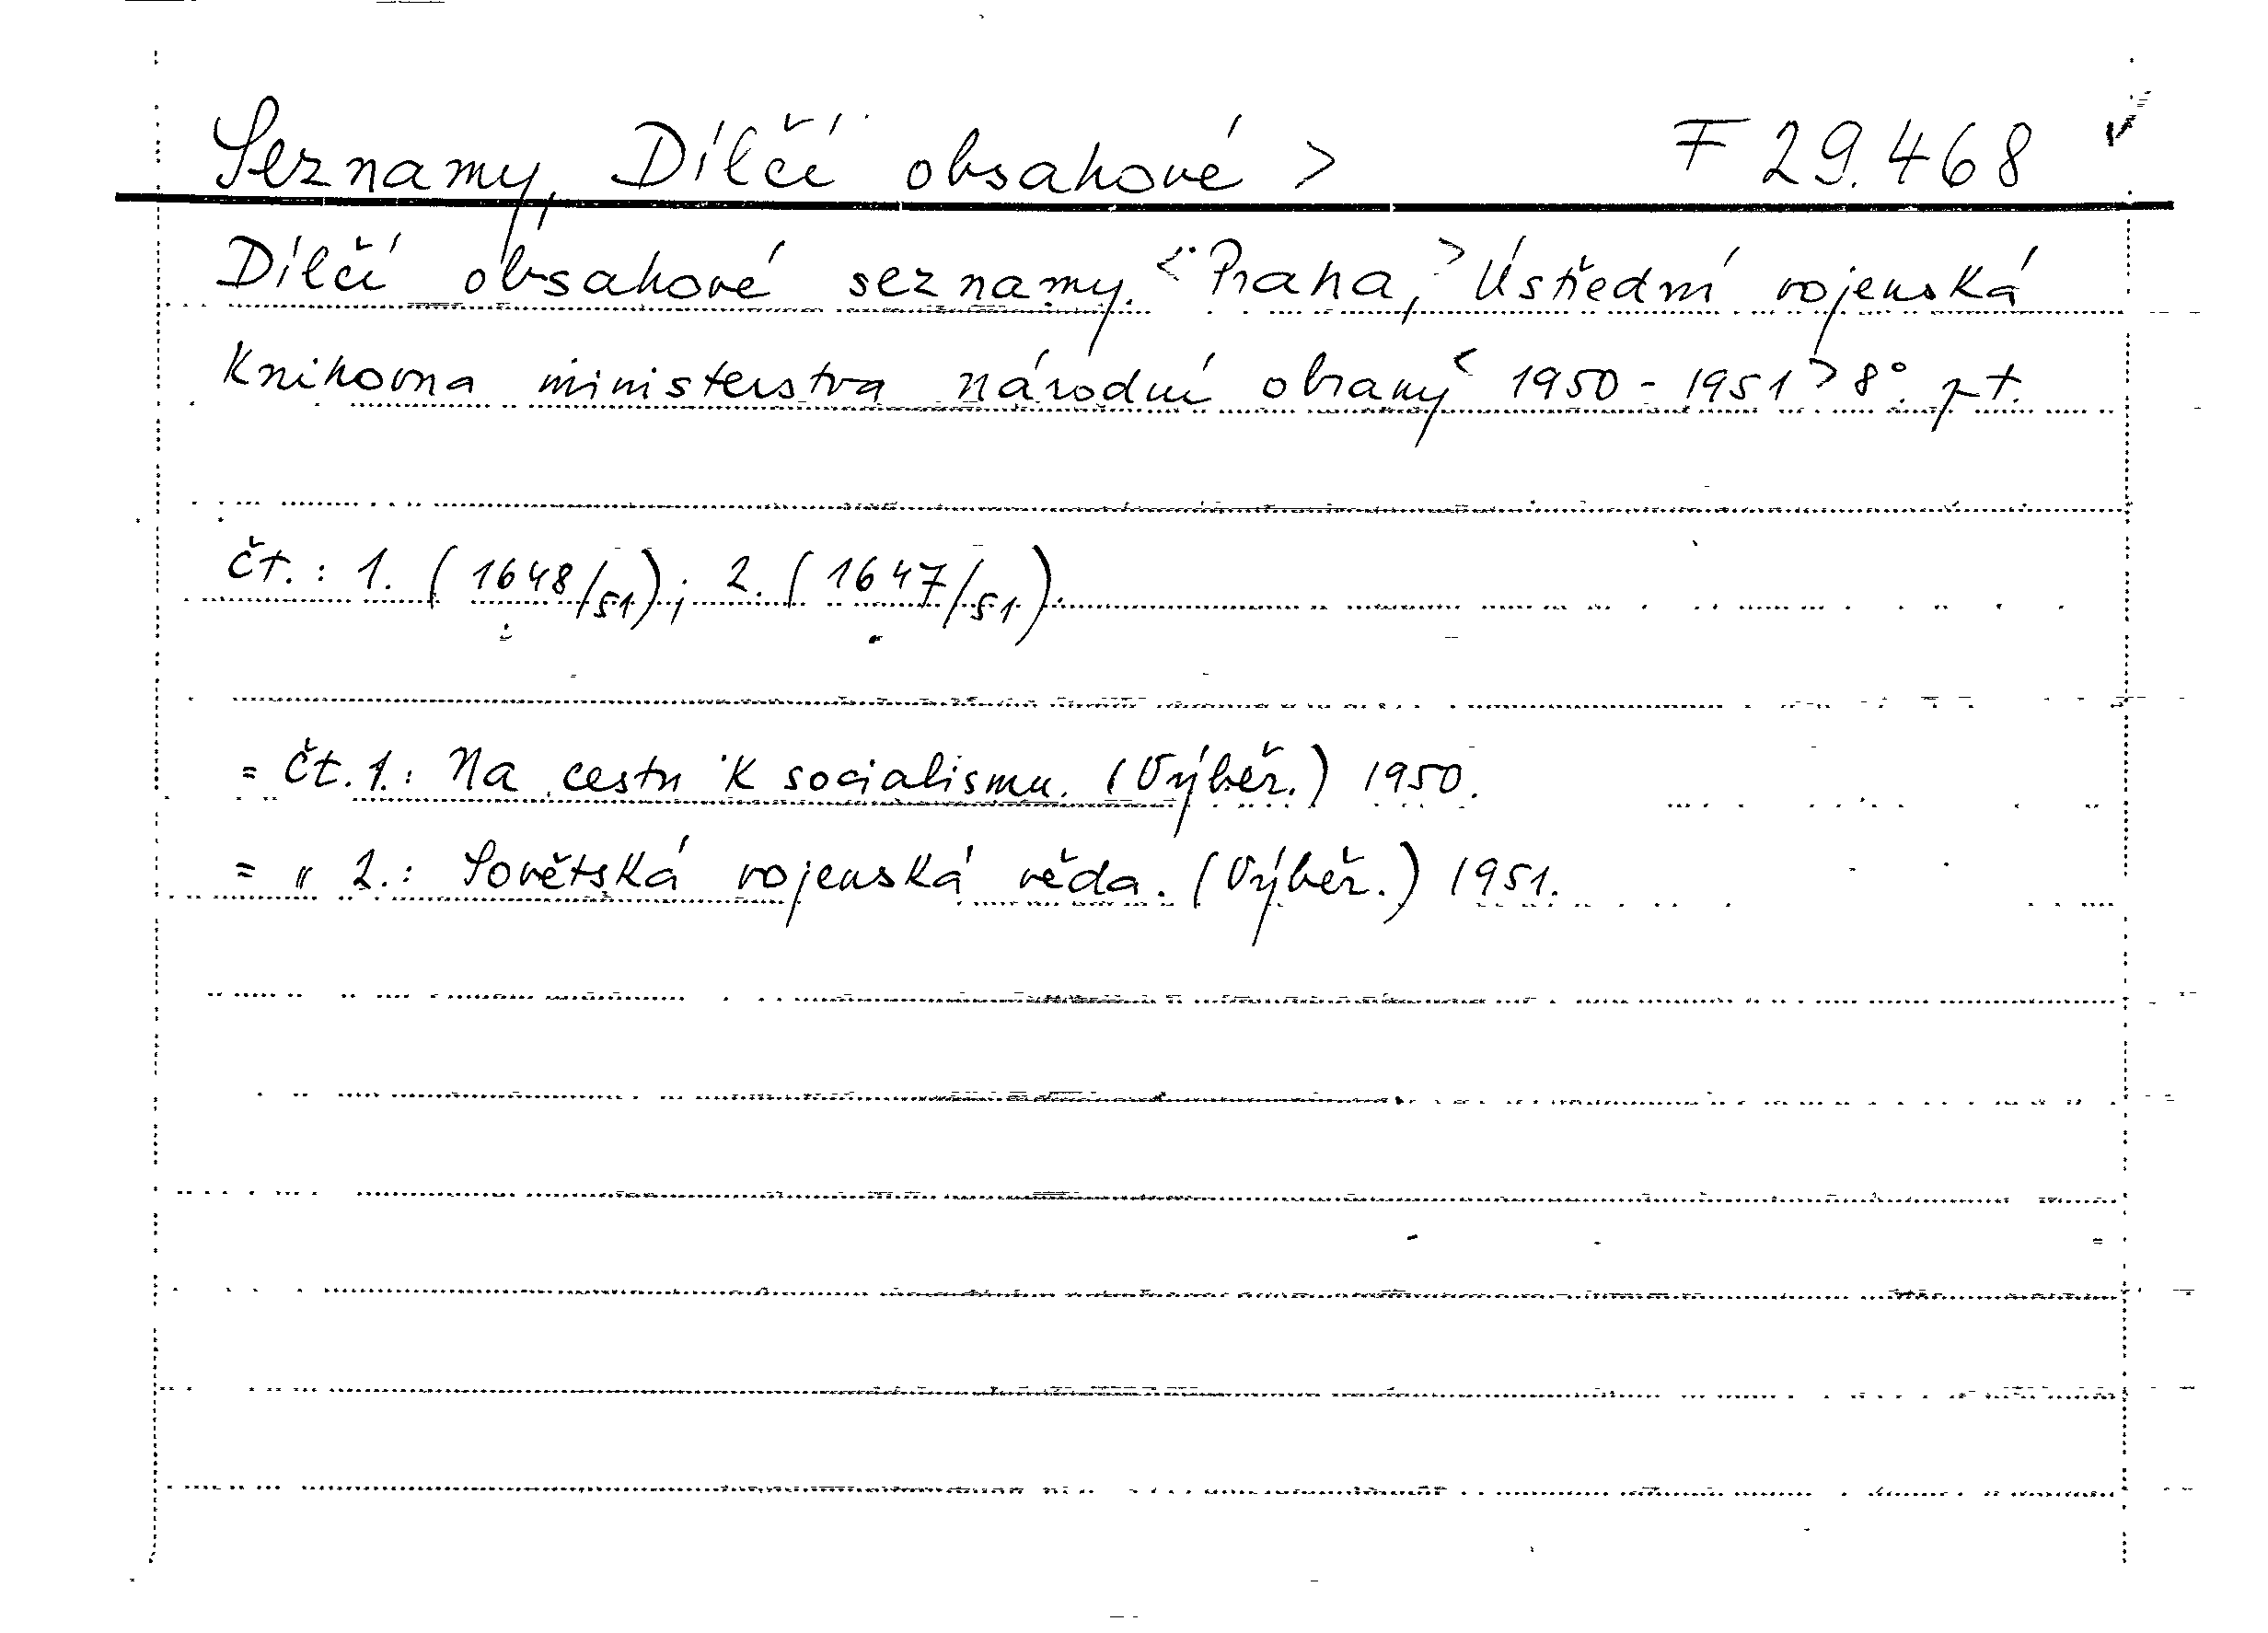 Seznamy, Dílčí obsahové > F 29.468
Dílčí obsahové seznamy. <Praha,> Ústřední vojenská
knihovna ministerstva národní obrany < 1950 - 1951 > 8°. pt.
čt.: 1. (1648/51); 2. (1647/51).
= čt. 1.: Na cestu k socialismu. (Výběr.) 1950.
= " 2.: Sovětská vojenská věda. (Výběr.) 1951.